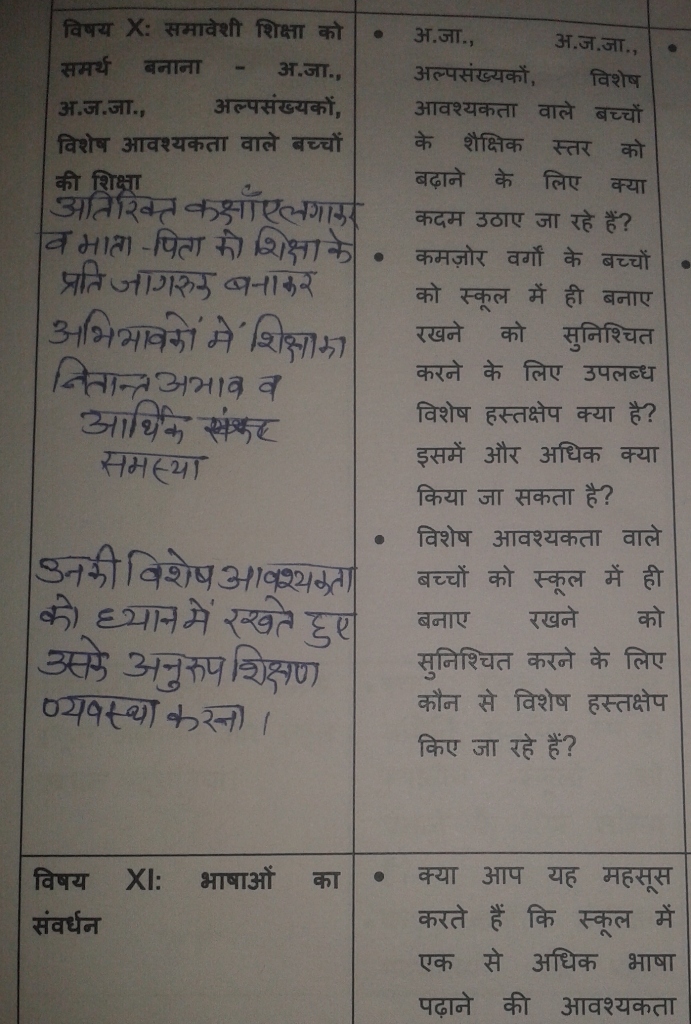 विषय X: समावेशी शिक्षा को
समर्थ बनाना - अ.जा.,
अ.ज.जा., अल्पसंख्यकों,
विशेष आवश्यकता वाले बच्चों
की शिक्षा
अतिरिक्त कक्षाएँ लगाकर
व माता-पिता को शिक्षा के
प्रति जागरुक बनाकर
अभिभावकों में शिक्षा का
नितान्त अभाव व
आर्थिक
समस्या
उनकी विशेष आवश्यकता
को ध्यान में रखते हुए
उसके अनुरुप शिक्षण
व्यवस्था करना ।
• अ.जा., अ.ज.जा.,
अल्पसंख्यकों, विशेष
आवश्यकता वाले बच्चों
के शैक्षिक स्तर को
बढ़ाने के लिए क्या
कदम उठाए जा रहे हैं?
• कमज़ोर वर्गों के बच्चों
को स्कूल में ही बनाए
रखने को सुनिश्चित
करने के लिए उपलब्ध
विशेष हस्तक्षेप क्या है?
इसमें और अधिक क्या
किया जा सकता है?
• विशेष आवश्यकता वाले
बच्चों को स्कूल में ही
बनाए रखने को
सुनिश्चित करने के लिए
कौन से विशेष हस्तक्षेप
किए जा रहे हैं?
विषय XI: भाषाओं का
संवर्धन
• क्या आप यह महसूस
करते हैं कि स्कूल में
एक से अधिक भाषा
पढ़ाने की आवश्यकता